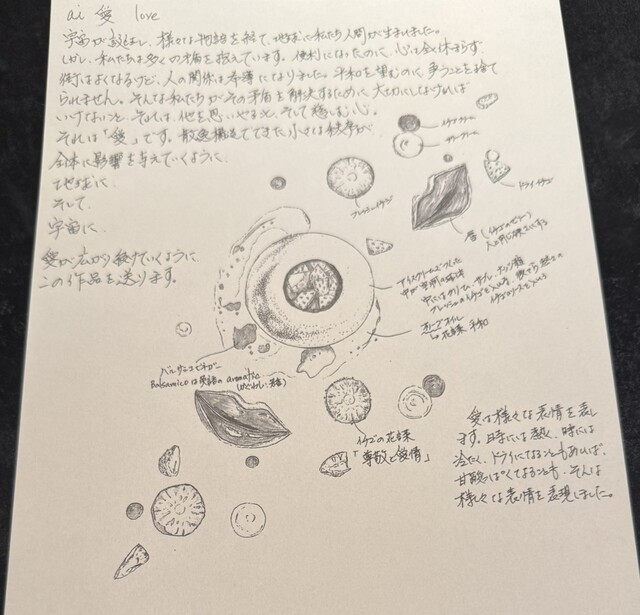 ai 愛 love
宇宙が誕生し、様々な物語を経て、地球に私たち人間が生まれました。
しかし、私たちは多くの矛盾を抱えています。便利になったのに、心は全く休まらず、
街はよくなるけど、人の関係は希薄になりました。平和を望むのに、争うことを捨て
られません。そんな私たちがその矛盾を解決するために大切にしなければ
いけないこと。それは、他を思いやること、そして慈しむ心。
それは「愛」です。散逸構造でできた小さな秩序が、
全体に影響を与えていくように
地球に、
そして、
宇宙に、
愛が広がり続けていくように
この作品を送ります。
ドライイチゴ
フレッシュイチゴ
唇(イチゴのゼリー)
アイスクリームでつくった
オリーブオイル
↳花言葉 平和
バルサミコビネガー
Balsamicoは英語の aromatic
イチゴの花言葉
「尊敬と愛情」
愛は様々な表情を表し
ます。時には熱く、時には
冷たく、ドライになることもあれば、
甘酸っぱくなることも、そんな
様々な表情を表現しました。